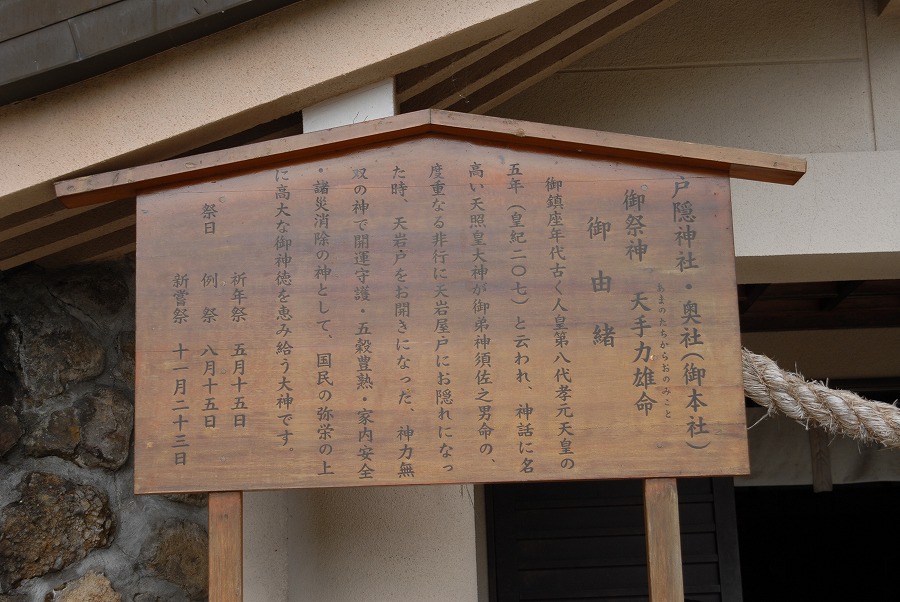 戸隠神社・奥社(御本社)
御祭神 天手力雄命
あまのたちからおのみこと
御由緒
御鎮座年代古く人皇第八代孝元天皇の
五年(皇紀二〇七)と云われ、神話に名
高い天照皇大神が御弟神須佐之男命の、
度重なる非行に天岩屋戸にお隠れになっ
た時、天岩戸をお開きになった、神力無
双の神で開運守護・五穀豊熟・家内安全
・諸災消除の神として、国民の弥栄の上
に高大な御神徳を恵み給う大神です。
祭日 祈年祭 五月十五日
例祭 八月十五日
新嘗祭 十一月二十三日